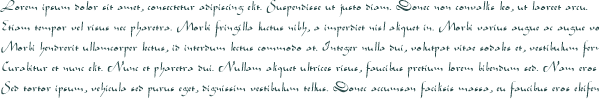 Lorem ipsum dolor sit amet, consectetur adipiscing elit. Suspendisse ut justo diam. Donec non convallis leo, ut laoreet arcu.
Etiam tempor vel risus nec pharetra. Morbi fringilla luctus nibh, a imperdiet nisl aliquet in. Morbi varius augue ac augue vo
Morbi hendrerit ullamcorper lectus, id interdum lectus commodo at. Integer nulla dui, volutpat vitae sodales et, vestibulum fer
Curabitur et nunc elit. Nunc et pharetra dui. Nullam aliquet ultrices risus, faucibus pretium lorem bibendum sed. Nam eros
Sed tortor ipsum, vehicula sed purus eget, dignissim vestibulum tellus. Donec accumsan facilisis massa, eu faucibus eros eleifen